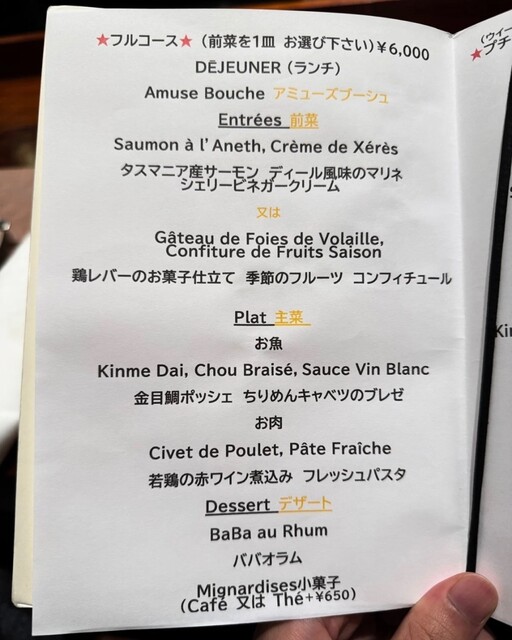 ★フルコース★（前菜を1皿 お選び下さい）￥6,000
DEJEUNER（ランチ）
Amuse Bouche アミューズブーシュ
Entrées 前菜
Saumon à l'Aneth, Crème de Xérès
タスマニア産サーモン ディール風味のマリネ
シェリービネガークリーム
又は
Gâteau de Foies de Volaille,
Confiture de Fruits Saison
鶏レバーのお菓子仕立て 季節のフルーツ コンフィチュール
Plat 主菜
お魚
Kinme Dai, Chou Braisé, Sauce Vin Blanc
金目鯛ポッシェ ちりめんキャベツのブレゼ
お肉
Civet de Poulet, Pâte Fraîche
若鶏の赤ワイン煮込み フレッシュパスタ
Dessert デザート
BaBa au Rhum
ババオラム
Mignardises小菓子
（Café 又は Thé+¥650）
（ウィー
★プチ
Kin